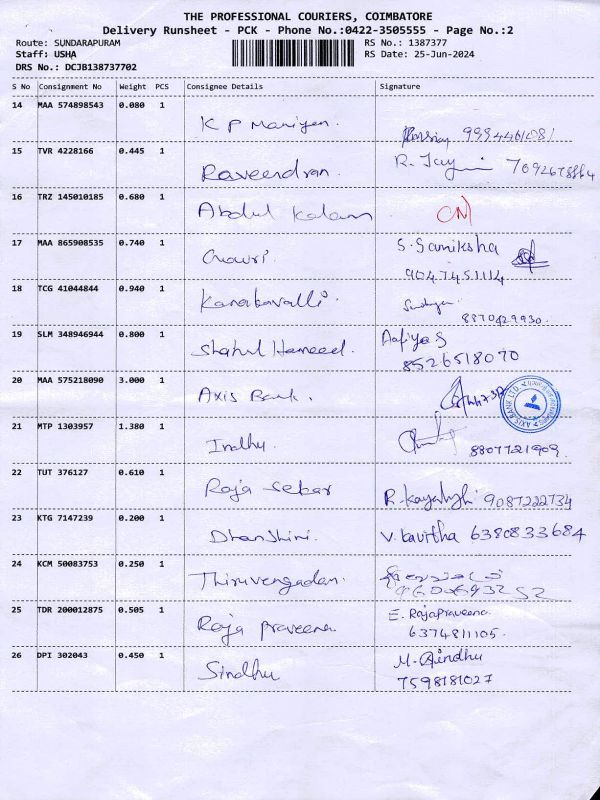 THE PROFESSIONAL COURIERS, COIMBATORE
Delivery Runsheet - PCK - Phone No.:0422-3505555 - Page No.:2
Route: SUNDARAPURAM RS No.: 1387377
Staff: USHA RS Date: 25-Jun-2024
DRS No.: DCJB138737702
S No Consignment No Weight PCS Consignee Details Signature
14 MAA 574898543 0.080 1 K P Mariyen. 9994461081
15 TVR 4228166 0.445 1 Raveendran. R. Jay 7092678864
16 TRZ 145010185 0.680 1 Abdul Kalam
17 MAA 865908535 0.740 1 Gowri. S. Samiksha
9047451114
18 TCG 41044844 0.940 1 Kanakavalli. Sandhya
8870429930.
19 SLM 348946944 0.800 1 Shahul Hameed. Aafiya S
8526518070
20 MAA 575218090 3.000 1 Axis Bank. AXIS BANK LTD.
21 MTP 1303957 1.380 1 Indhu 8807721909.
22 TUT 376127 0.610 1 Raja Sekar R. Kayalvizhi 9087222734
23 KTG 7147239 0.200 1 Dharshini. V. Kavitha 6380833684
24 KCM 50083753 0.250 1 Thiruvengadam.
25 TDR 200012875 0.505 1 Raja Praveena E. Rajapraveena
6374811105.
26 DPI 302043 0.450 1 Sindhu M. Sindhu
7598181027